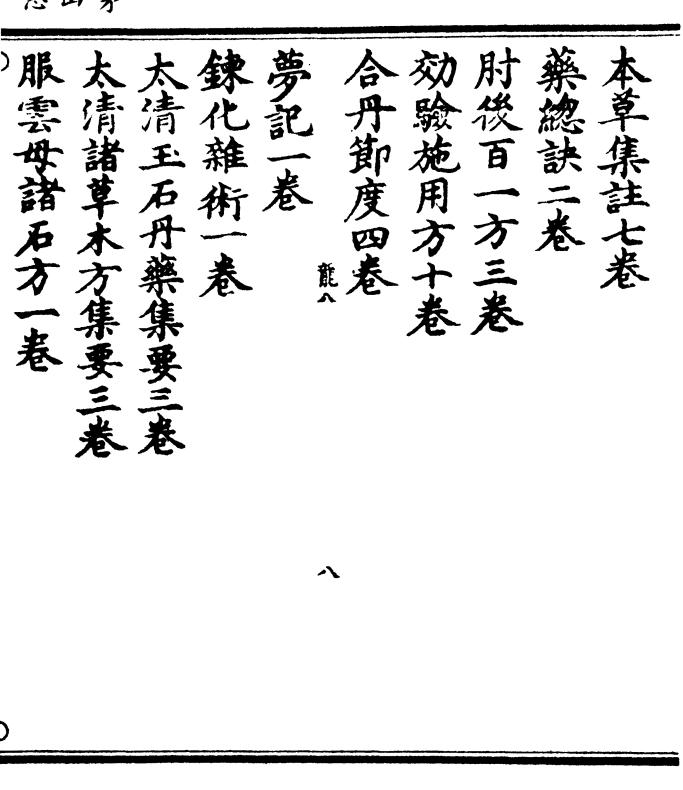 本草集註七卷
藥總訣二卷
肘後百一方三卷
効驗施用方十卷
合丹節度四卷
龍八
八
夢記一卷
鍊化雜術一卷
太清玉石丹藥集要三卷
太清諸草木方集要三卷
服雲母諸石方一卷